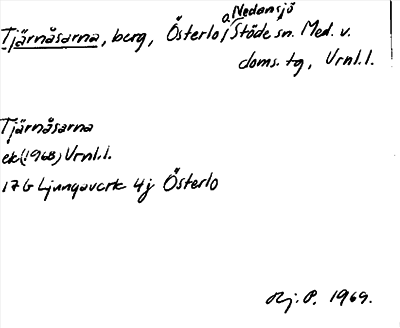 Tjärnåsarna, berg, Österlo, a. Nedansjö Stöde sn. Med. v.
doms. tg, Vrnl. l.
Tjärnåsarna
ek (1968) Vrnl. l.
17G Ljungaverk 4j Österlo
Rj. P. 1969.